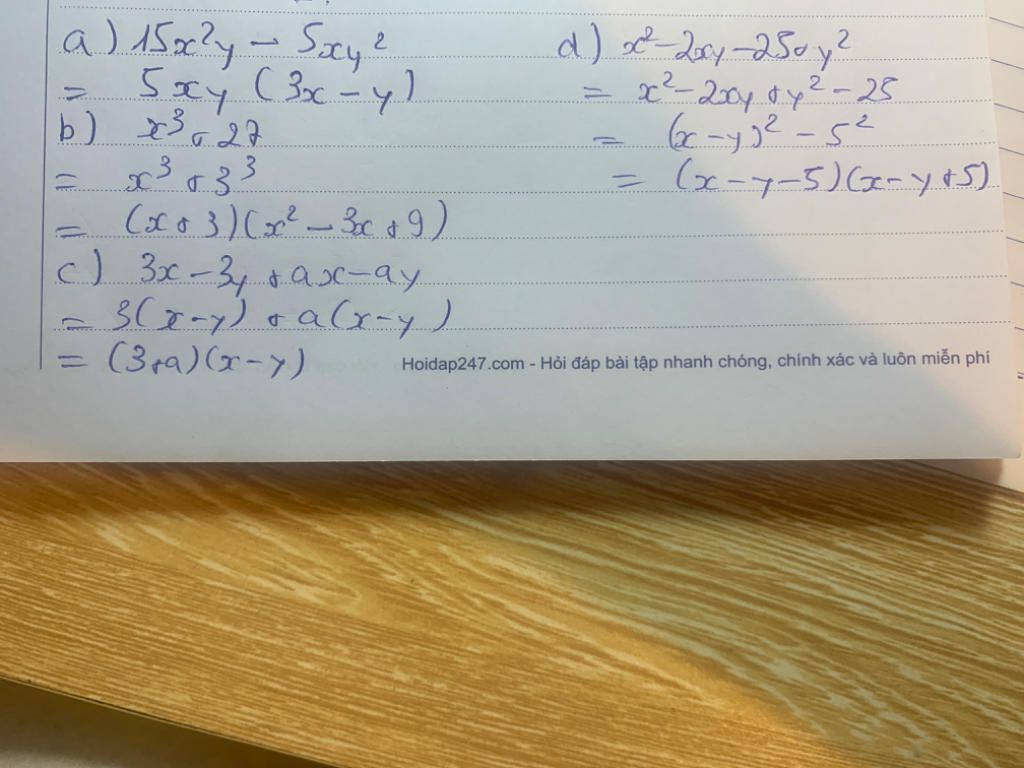 a) 15x²y - 5xy²
= 5xy (3x - y)
b) x³ + 27
= x³ + 3³
= (x + 3)(x² - 3x + 9)
c) 3x - 3y + ax - ay
= 3(x - y) + a(x - y)
= (3 + a)(x - y)
d) x² - 2xy - 25 + y²
= x² - 2xy + y² - 25
= (x - y)² - 5²
= (x - y - 5)(x - y + 5)
Hoidap247.com - Hỏi đáp bài tập nhanh chóng, chính xác và luôn miễn phí